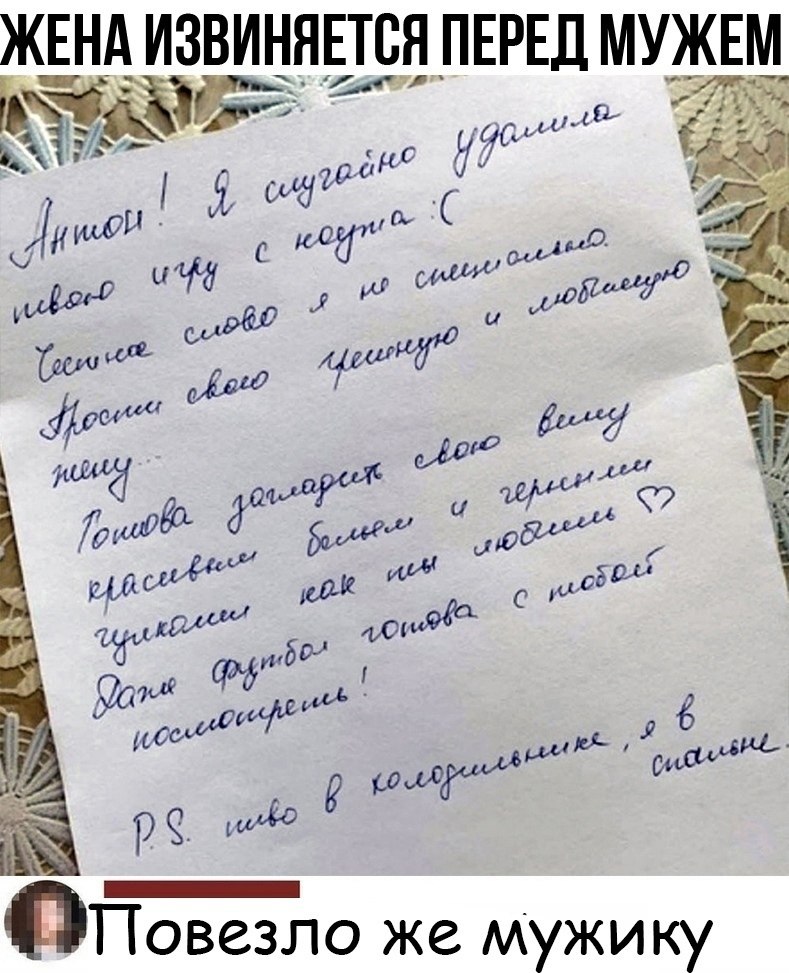 ЖЕНА ИЗВИНЯЕТСЯ ПЕРЕД МУЖЕМ
Антон! Я случайно удалила
твою игру с ноута :(
Честное слово я не специально.
Прости свою грешную и любимую
жену...
Готова загладить свою вину
красивым бельем и черными
чулками как ты любишь ♡
Даже футбол готова с тобой
посмотреть!
P.S. пиво в холодильнике, я в
спальне.
Повезло же мужику